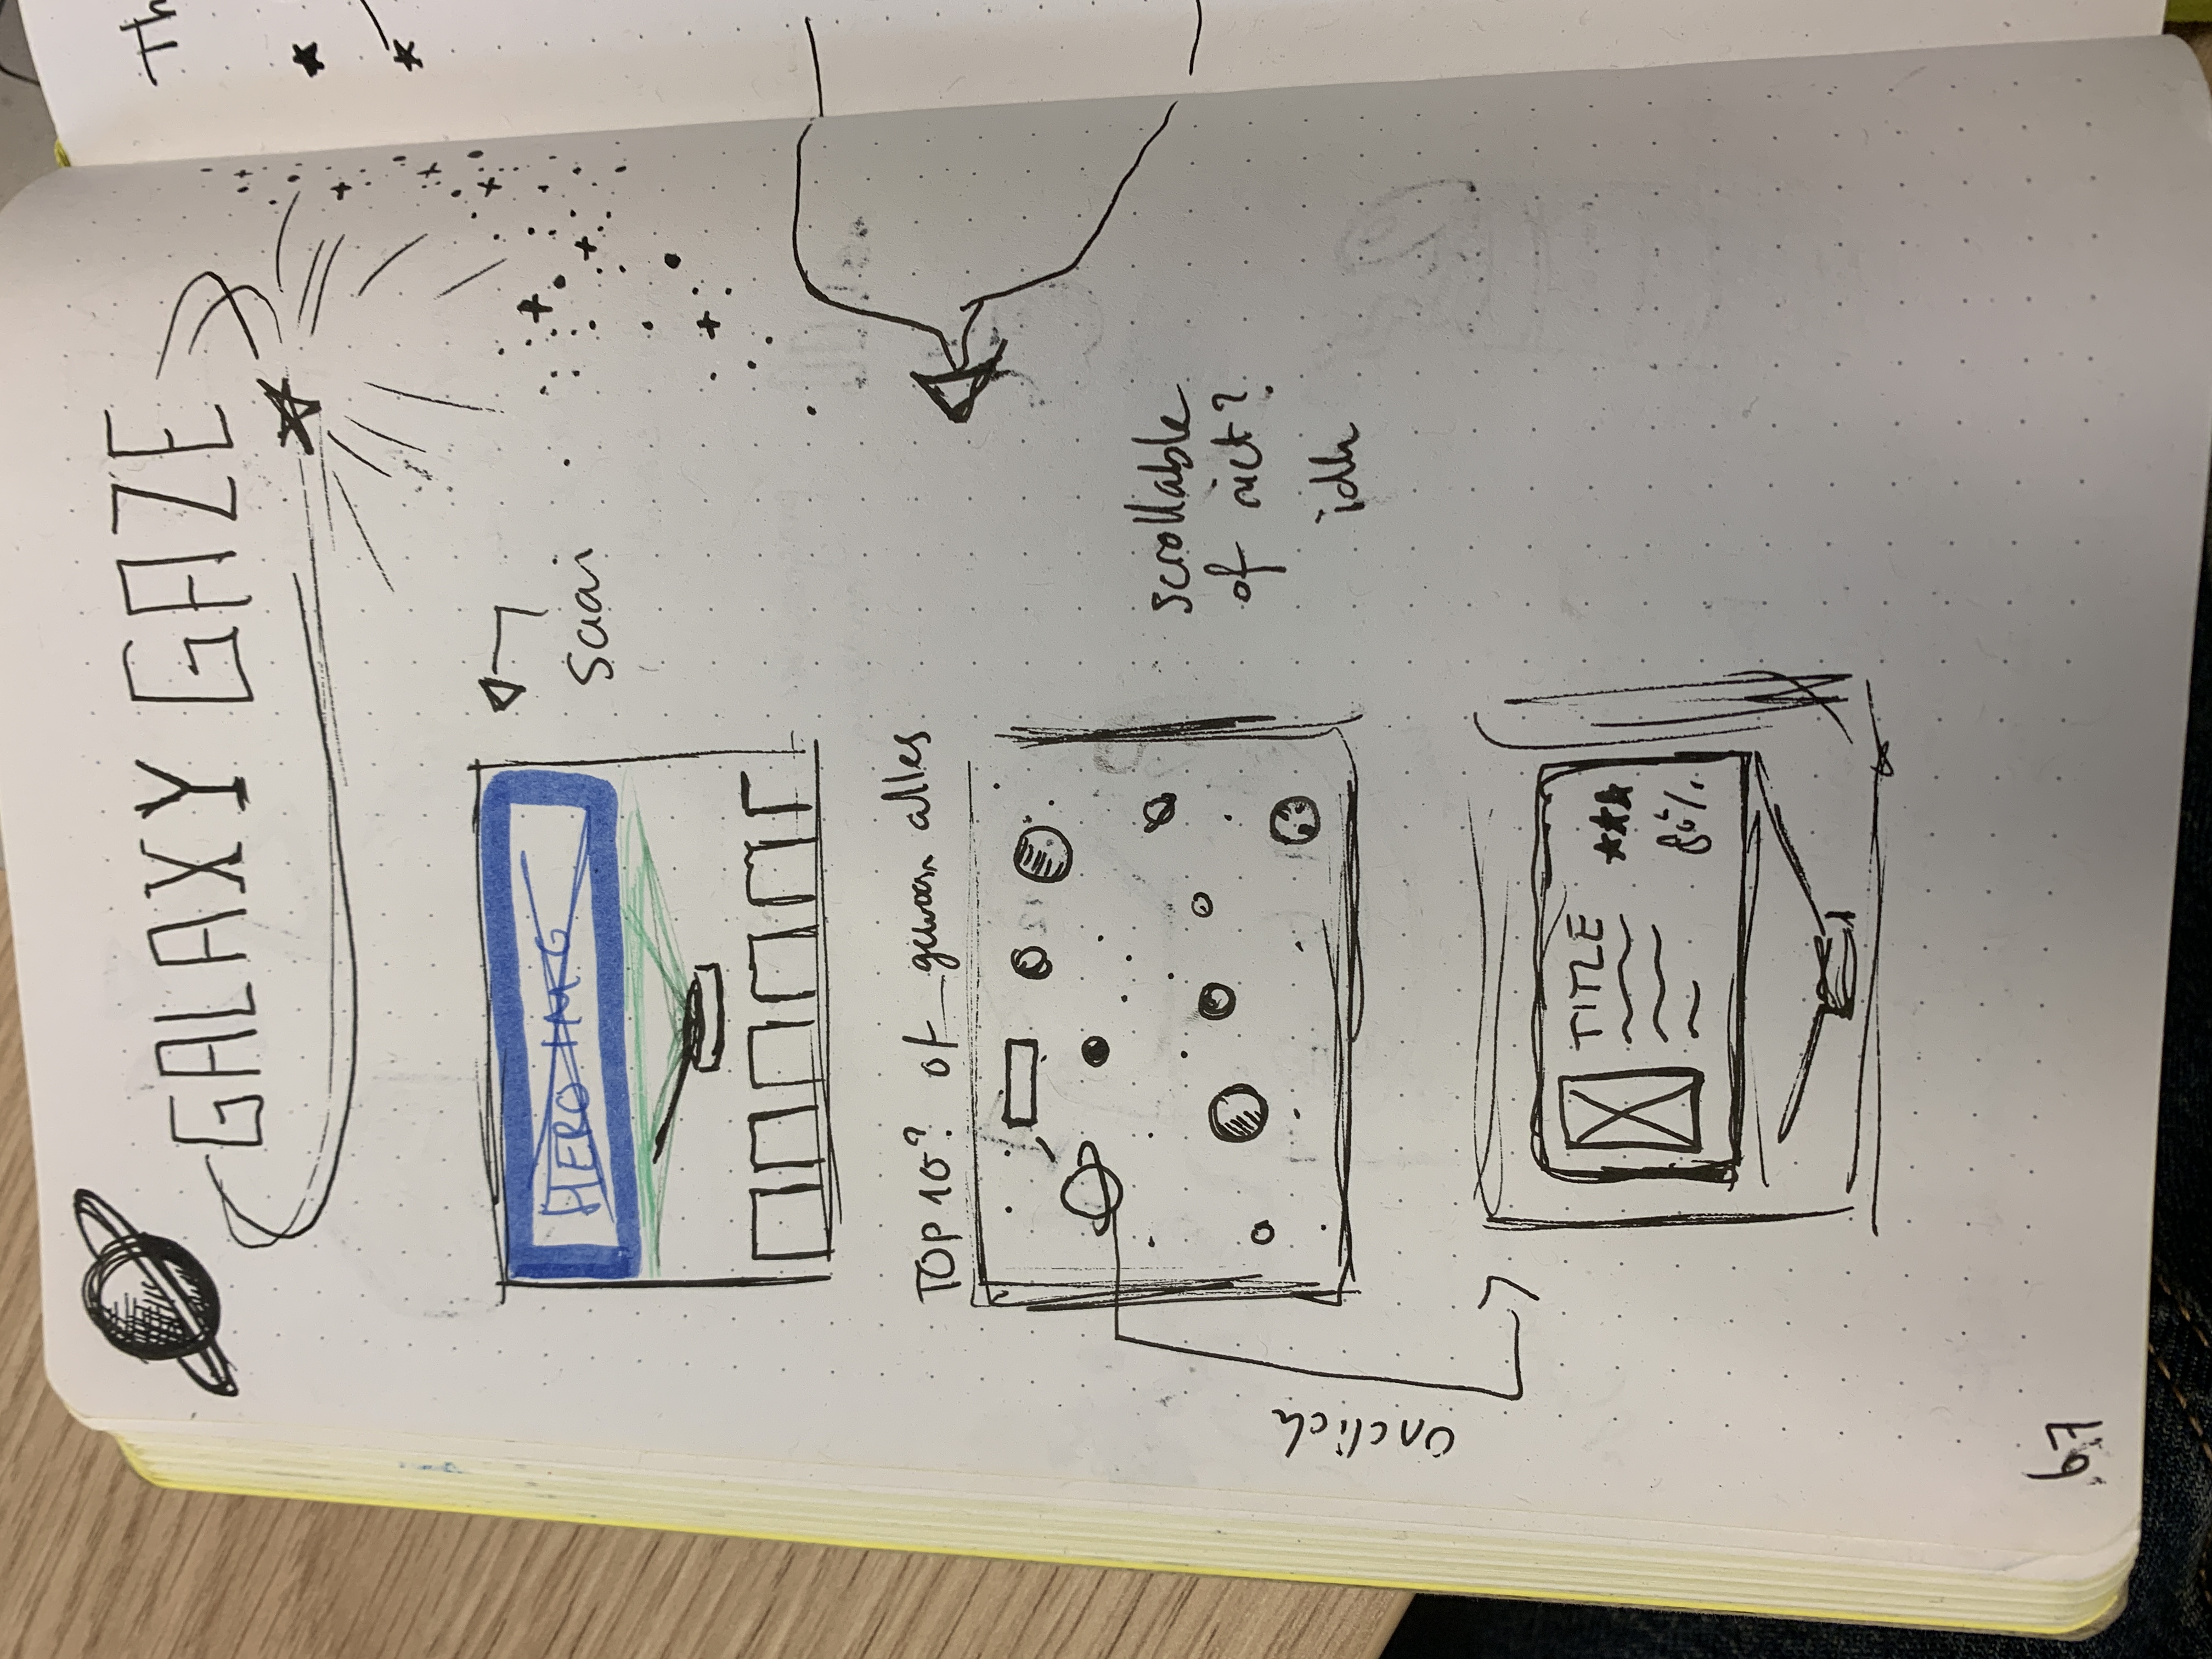 GALAXY GAZE
Th
HERO IMG
saai
TOP 10? of gewoon alles
scrollable
of niet?
idk
onclick
TITLE
80%
67